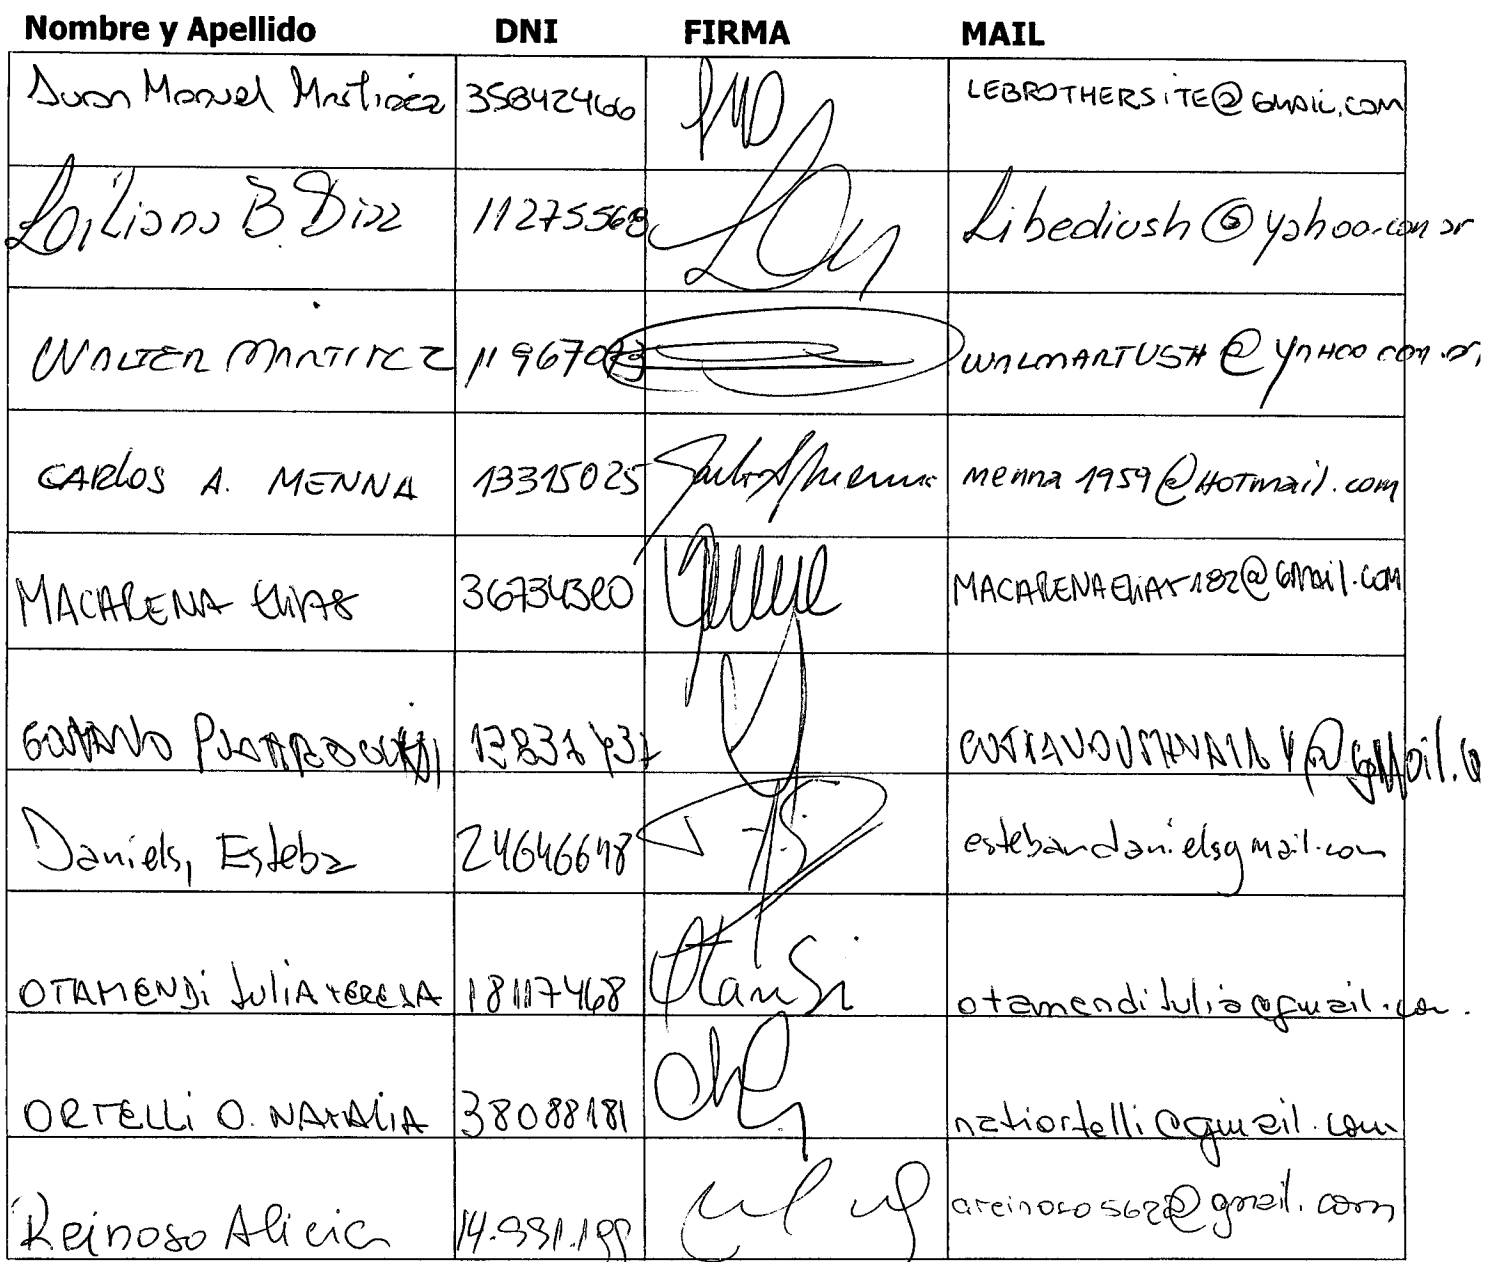 Nombre y Apellido DNI FIRMA MAIL
Juan Manuel Martinez 35842466 LEBROTHERSITE@GMAIL.COM
Liliana B. Diaz 11275568 Libediush@yahoo.com.ar
WALTER MARTINEZ WALMARTUSH@YAHOO.com.ar
CARLOS A. MENNA 13315025 menna1959@HOTmail.com
MACARENA ELIAS 36734320 MACARENAELIAS182@GMail.COM
@gmail.
Daniels, Esteba 24646648 estebandanielsgmail.com
OTAMENDI JULIA TERESA 18117468 otamendijulia@gmail.com.
ORTELLI O. NATALIA 38088181 natiortelli@gmail.com
Reinoso Alicia areinoso5622@gmail.com